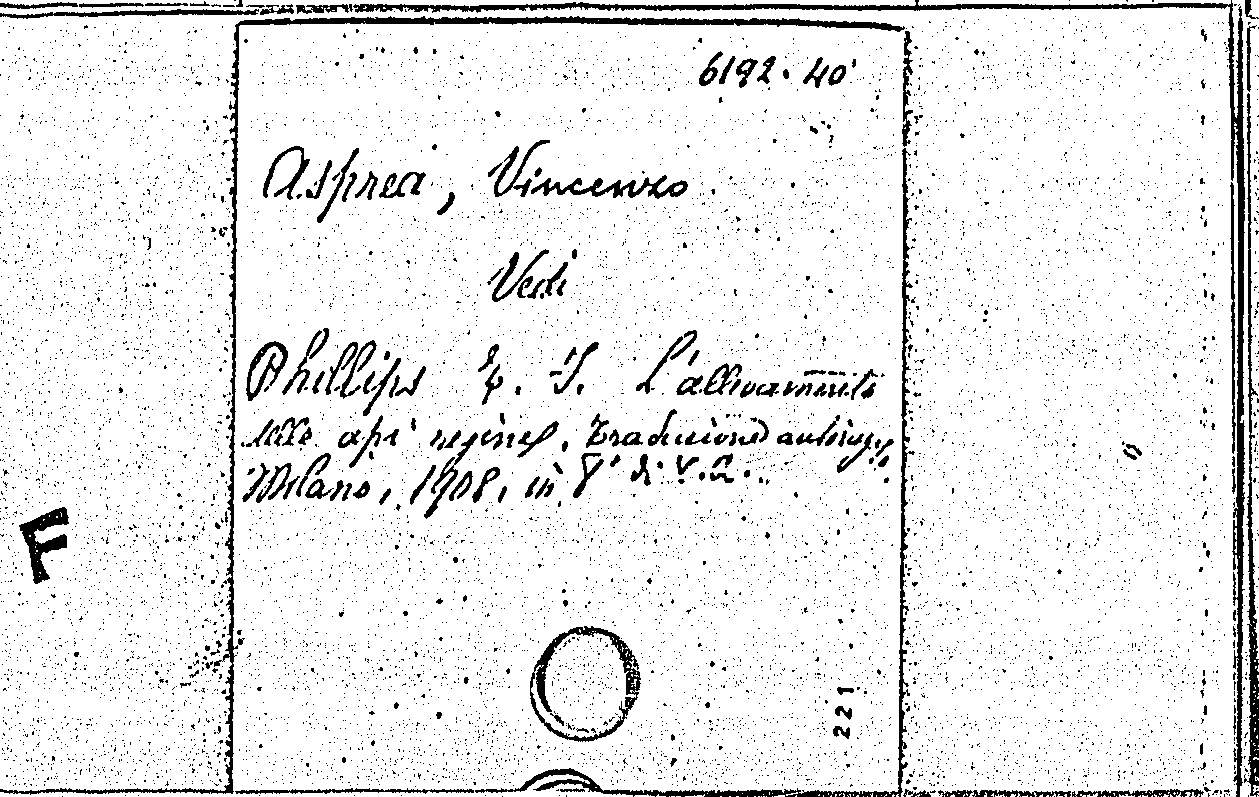 6192.40
Asprea, Vincenzo
Vedi
Phillips E. F. L'allevamento
delle api regine. Traduzione
Milano, 1908, in 8° di
F
221